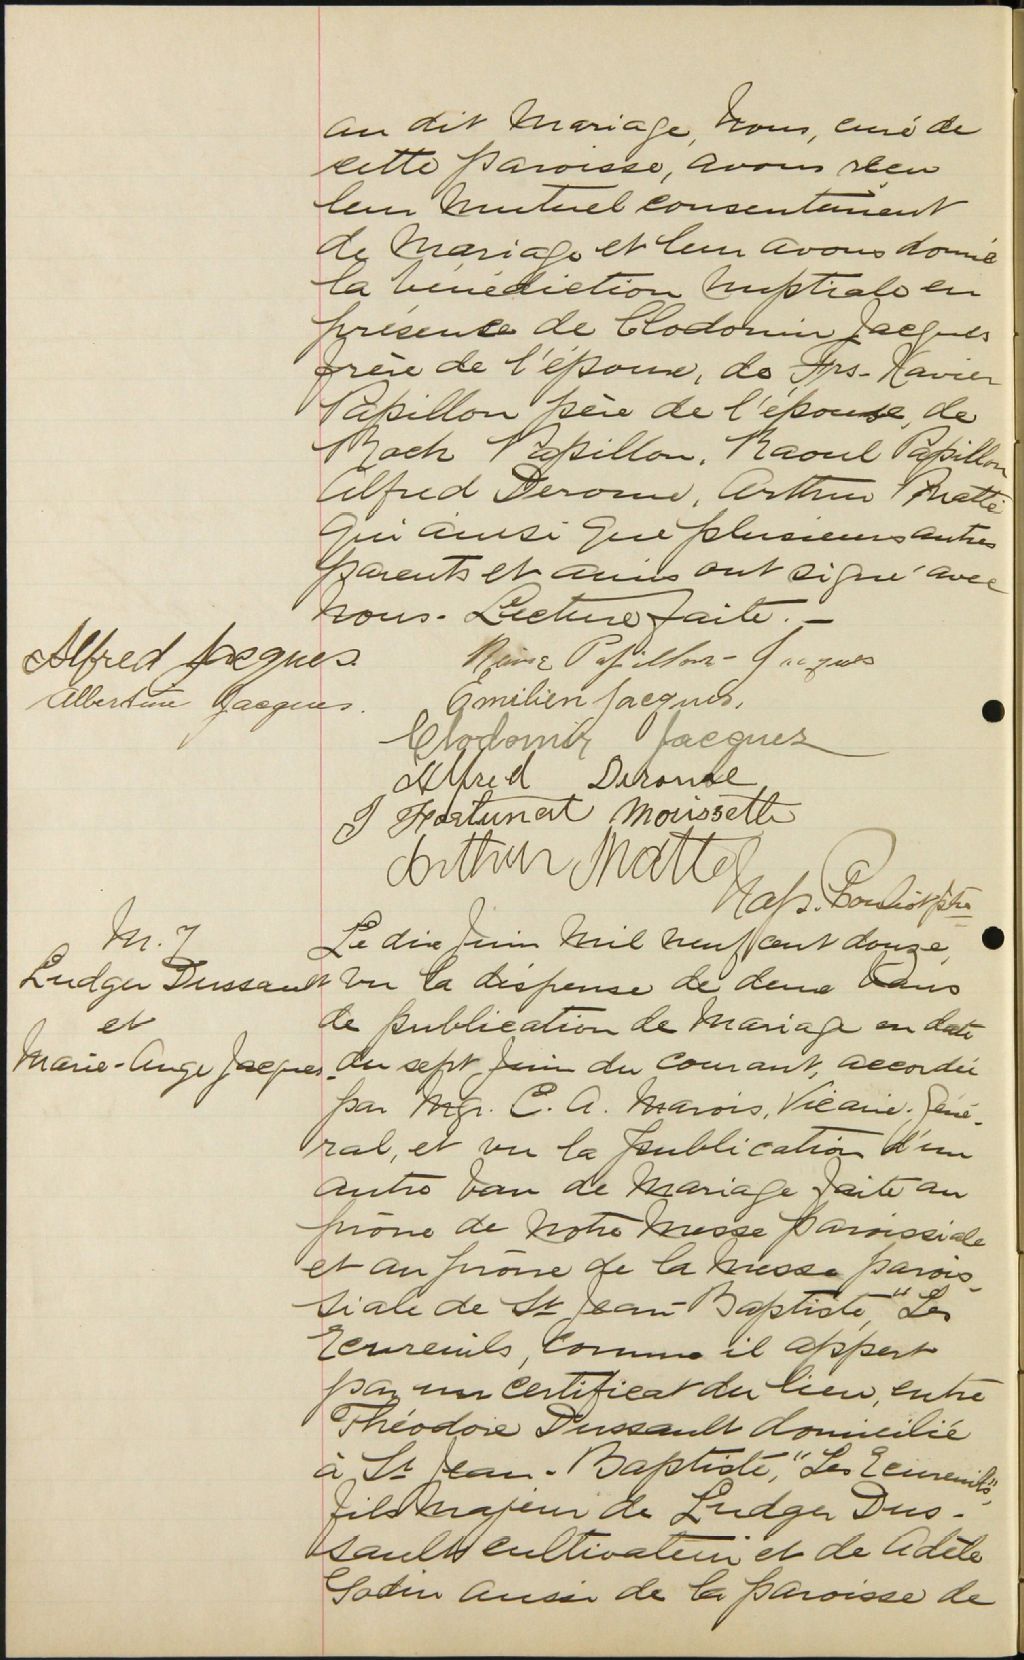 au dit Mariage, Nous, curé de
cette paroisse, avons reçu
leur mutuel consentement
de Mariage et leur avons donné
la bénédiction nuptiale en
présence de Clodomir Jacques
frère de l'époux, de Frs-Xavier
Papillon père de l'épouse, de
Roch Papillon, Raoul Papillon
Alfred Derome, Arthur Matte
qui ainsi que plusieurs autres
parents et amis ont signé avec
Nous. Lecture faite. —
Alfred Jacques
Albertine Jacques.
Papillon-Jacques
Emilien Jacques.
Clodomir Jacques
Alfred Derome
J Fortunat Moissette
Arthur Matte
Nap. Pouliot ptre
M. 7
Ludger Dussault
et
Marie-Ange Jacques
Le dix Juin mil neuf cent douze,
vu la dispense de deux bans
de publication de Mariage en date
du sept Juin du courant, accordée
par Mgr. C. A. Marois, Vicaire-Géné-
ral, et vu la publication d'un
autre ban de Mariage faite au
prône de notre Messe paroissiale
et au prône de la Messe parois-
siale de St Jean-Baptiste, "Les
Ecureuils, comme il appert
par un certificat du lieu, entre
Théodore Dussault domicilié
à St Jean-Baptiste, "Les Ecureuils",
fils Majeur de Ludger Dus-
sault cultivateur et de Adèle
Godin aussi de la paroisse de